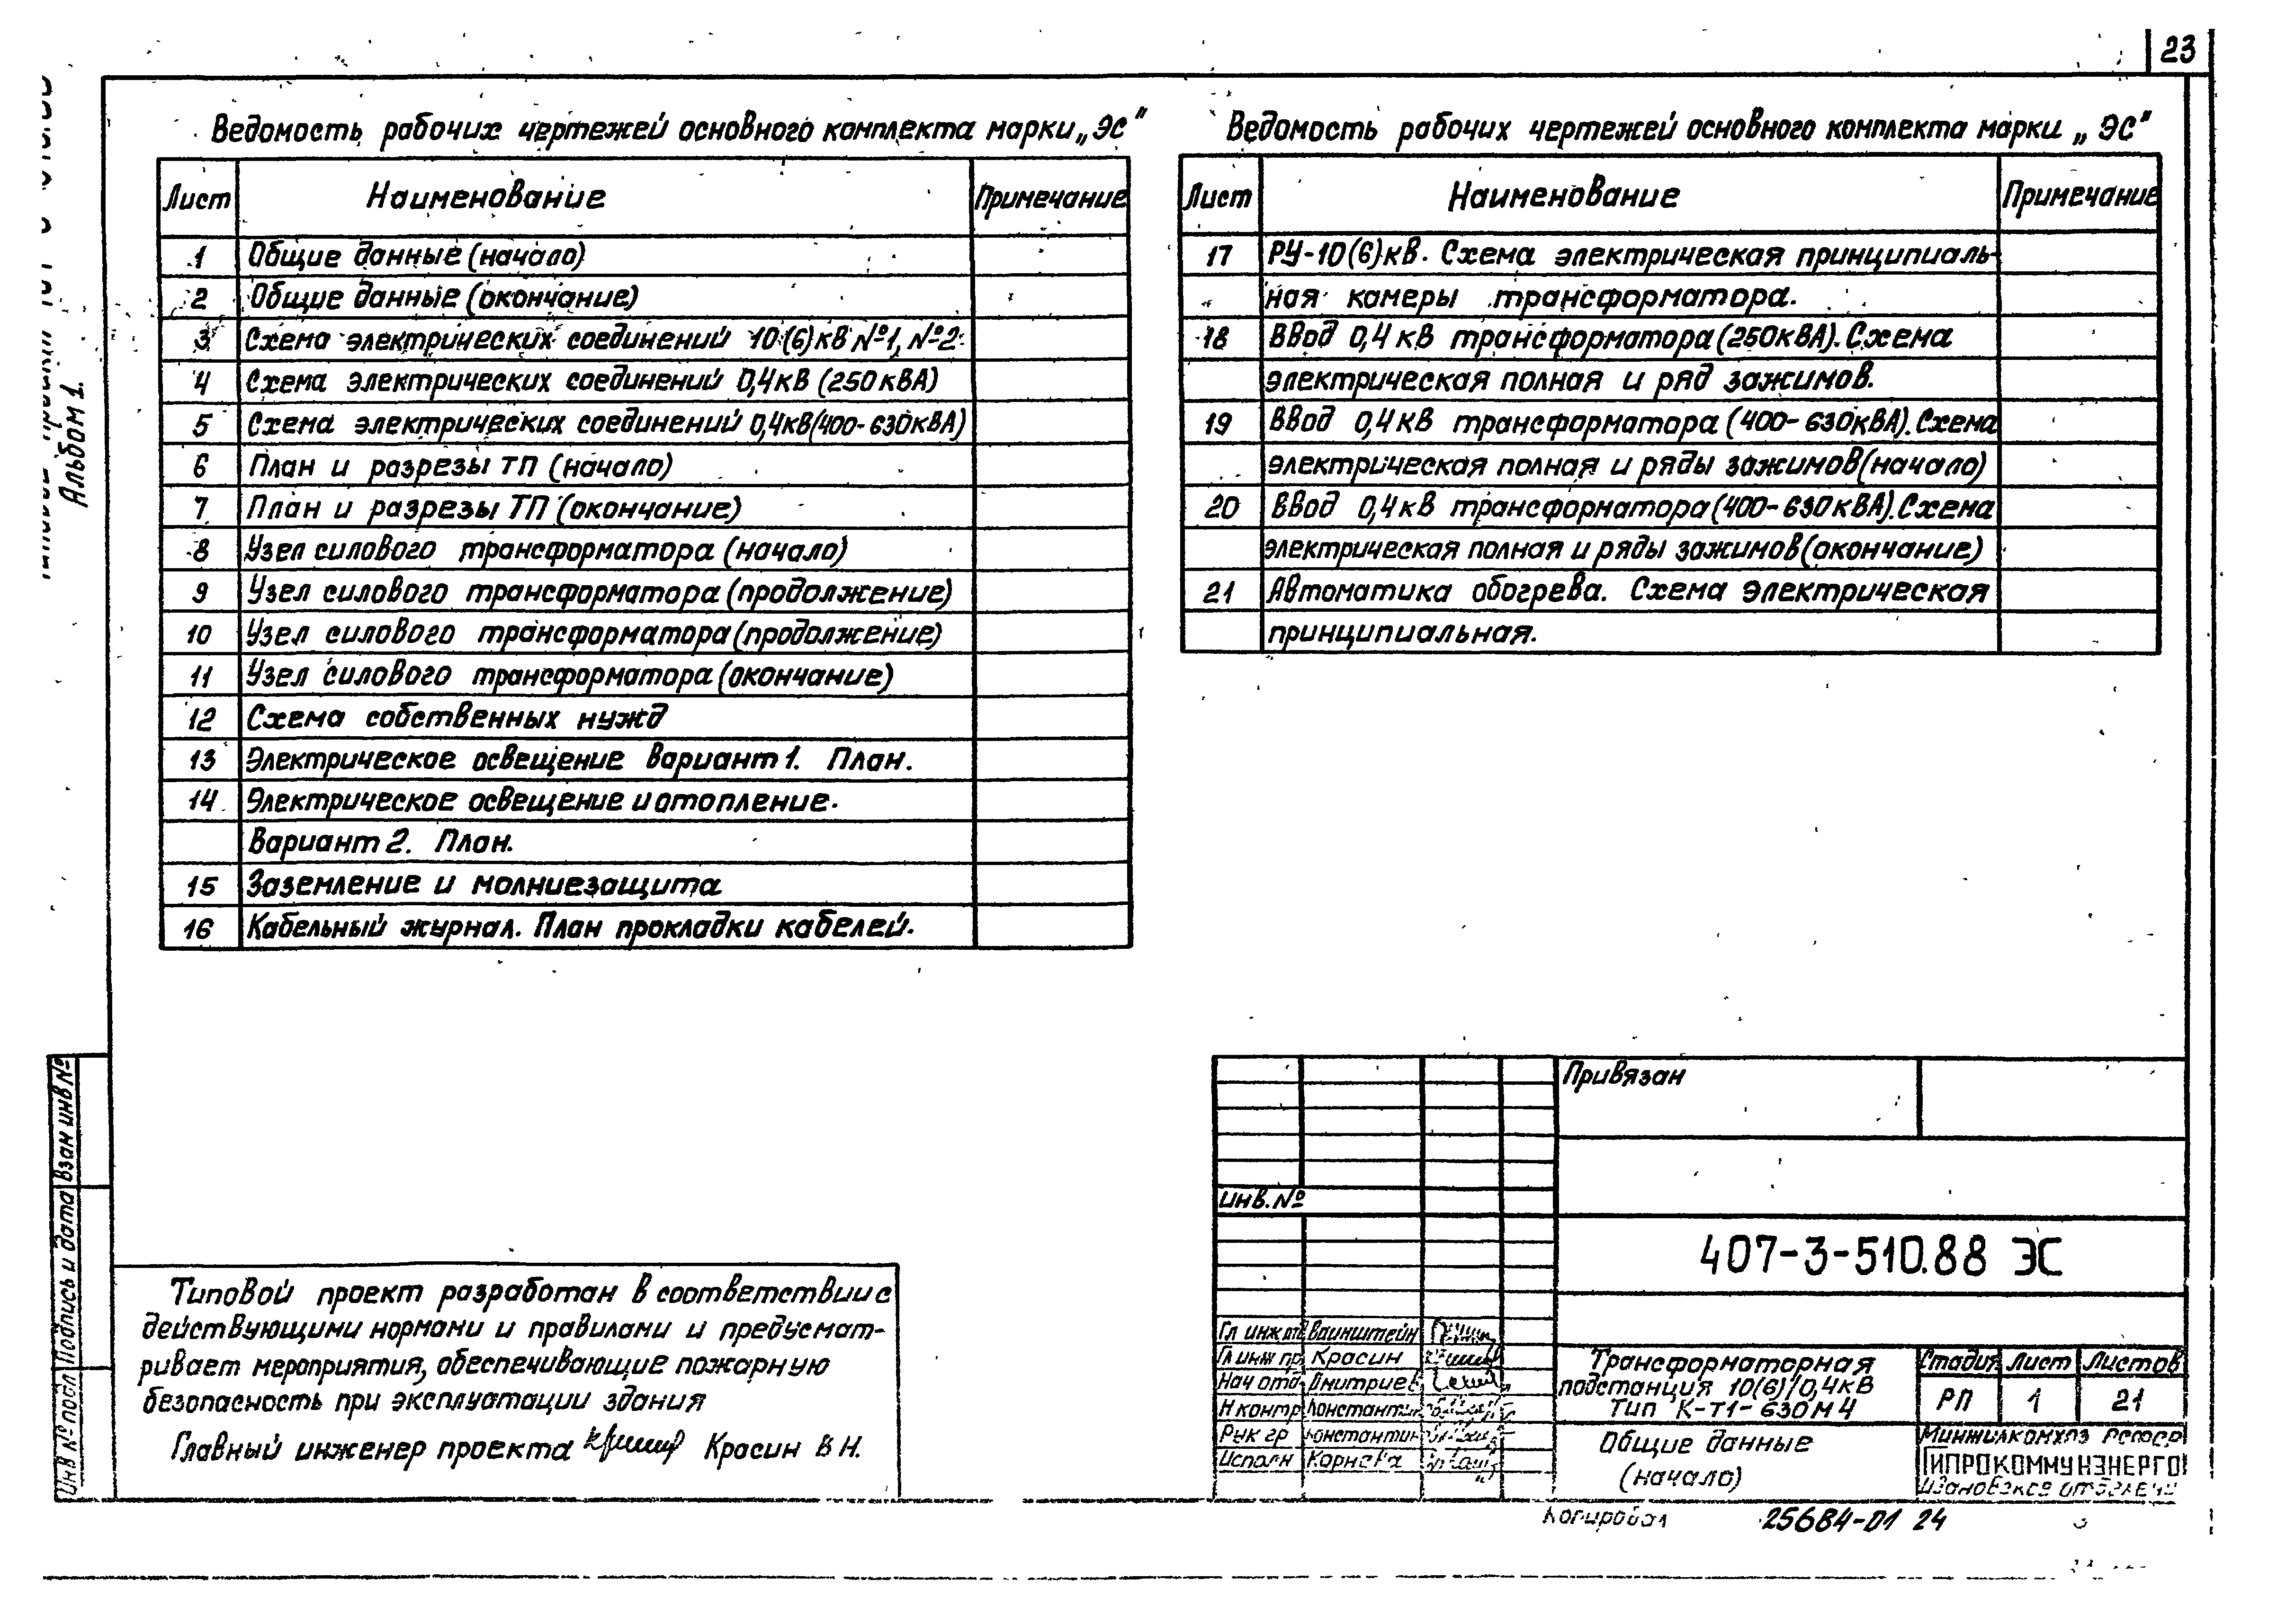 23
Альбом 1.
Ведомость рабочих чертежей основного комплекта марки „ЭС"
Лист Наименование Примечание
1 Общие данные (начало)
2 Общие данные (окончание)
3 Схема электрических соединений 10(6)кВ №1, №2
4 Схема электрических соединений 0,4кВ (250кВА)
5 Схема электрических соединений 0,4кВ(400-630кВА)
6 План и разрезы ТП (начало)
7 План и разрезы ТП (окончание)
8 Узел силового трансформатора (начало)
9 Узел силового трансформатора (продолжение)
10 Узел силового трансформатора (продолжение)
11 Узел силового трансформатора (окончание)
12 Схема собственных нужд
13 Электрическое освещение Вариант 1. План.
14 Электрическое освещение и отопление.
Вариант 2. План.
15 Заземление и молниезащита
16 Кабельный журнал. План прокладки кабелей.
Ведомость рабочих чертежей основного комплекта марки „ЭС"
Лист Наименование Примечание
17 РУ-10(6)кВ. Схема электрическая принципиаль-
ная камеры трансформатора.
18 Ввод 0,4кВ трансформатора (250кВА). Схема
электрическая полная и ряд зажимов.
19 Ввод 0,4кВ трансформатора (400-630кВА). Схема
электрическая полная и ряды зажимов (начало)
20 Ввод 0,4кВ трансформатора (400-630кВА). Схема
электрическая полная и ряды зажимов (окончание)
21 Автоматика обогрева. Схема электрическая
принципиальная.
Типовой проект разработан в соответствии с
действующими нормами и правилами и предусмат-
ривает мероприятия, обеспечивающие пожарную
безопасность при эксплуатации здания
Главный инженер проекта Красин В Н.
Взам инв №
Подпись и дата
Инв № подл
Привязан
Инв. №
407-3-510.88 ЭС
Гл инж отд Вайнштейн
Гл инж пр Красин
Нач отд. Дмитриев
Н контр Константин
Рук гр Константин
Исполн Корнева
Трансформаторная
подстанция 10(6)/0,4кВ
Тип К-Т1-630М4
Стадия Лист Листов
РП 1 21
Общие данные
(начало)
Минжилкомхоз РСФСР
ГИПРОКОММУНЭНЕРГО
Ивановское отделени
Копировал 25684-01 24